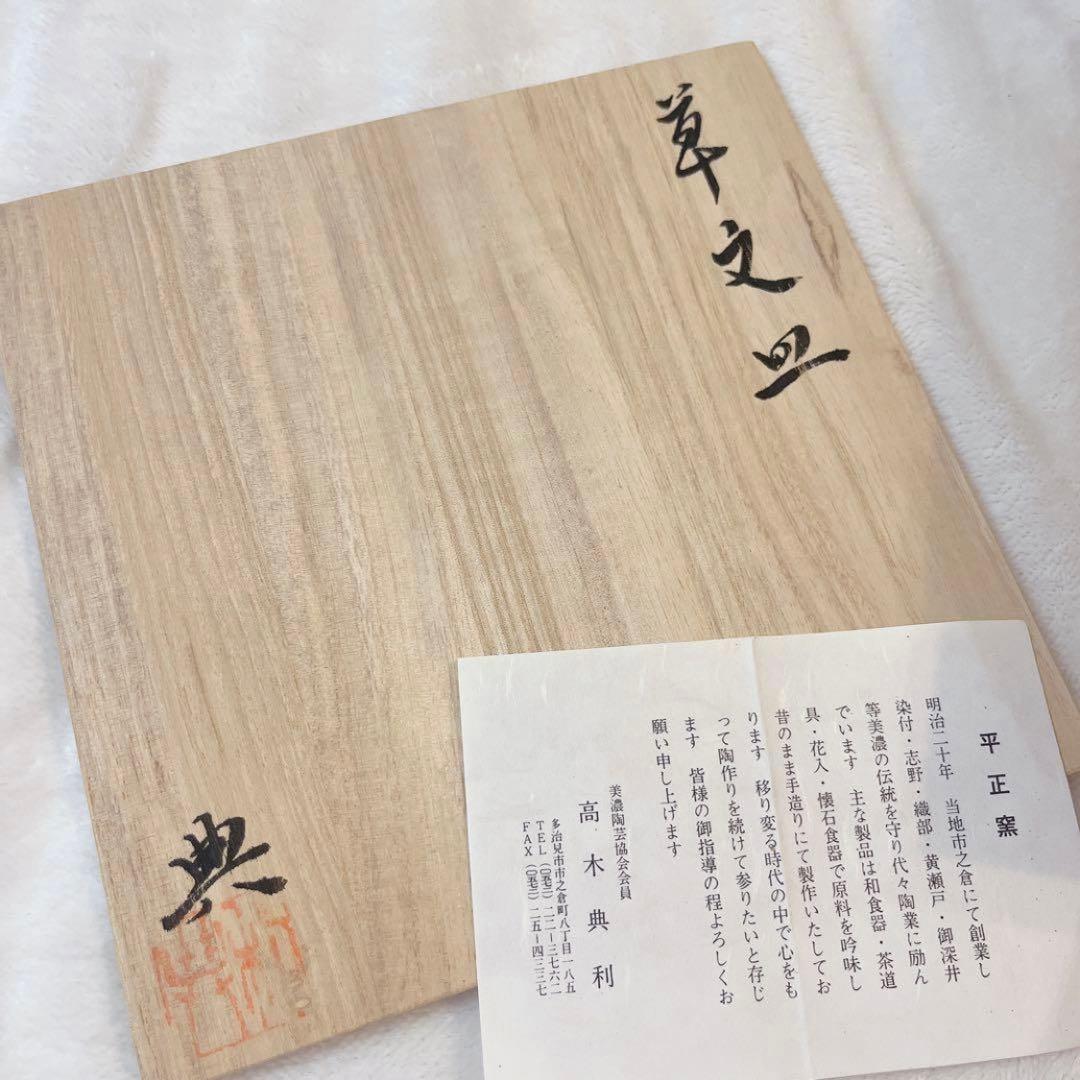 草文皿
典
平正窯
明治二十年　当地市之倉にて創業し
染付・志野・織部・黄瀬戸・御深井
等美濃の伝統を守り代々陶業に励ん
でいます　主な製品は和食器・茶道
具・花入・懐石食器で原料を吟味し
昔のまま手造りにて製作いたしてお
ります　移り変る時代の中で心をも
って陶作りを続けて参りたいと存じ
ます　皆様の御指導の程よろしくお
願い申し上げます
美濃陶芸協会会員
高木典利
多治見市市之倉町八丁目一八五
TEL（〇五七二）二二ー三七六二
FAX（〇五七二）二五ー四三三七